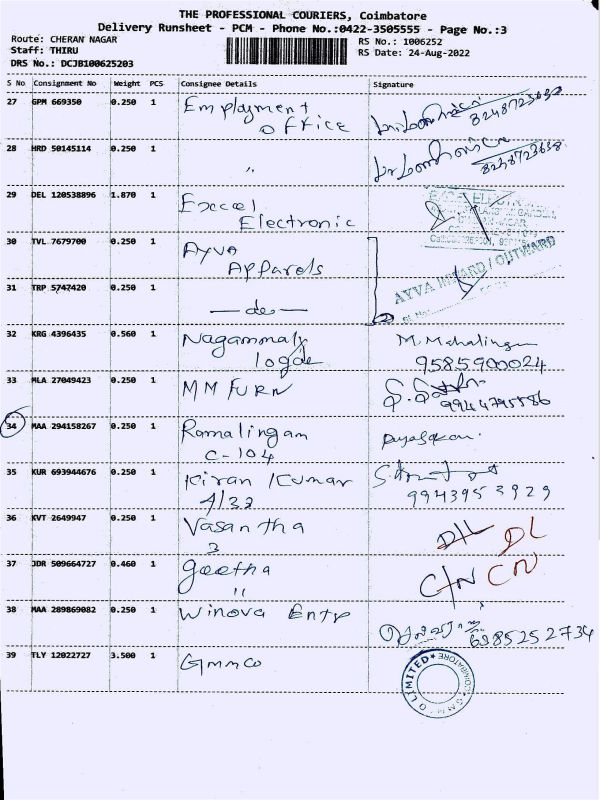 THE PROFESSIONAL COURIERS, Coimbatore
Delivery Runsheet - PCM - Phone No.:0422-3505555 - Page No.:3
Route: CHERAN NAGAR RS No.: 1006252
Staff: THIRU RS Date: 24-Aug-2022
DRS No.: DCJB100625203
S No Consignment No Weight PCS Consignee Details Signature
27 GPM 669350 0.250 1 Employment
office 8248723638
28 HRD 50145114 0.250 1 " 8248723638
29 DEL 120538896 1.870 1 Exccel
Electronic
30 TVL 7679700 0.250 1 AYVA
Apparels
AYVA INWARD / OUTWARD
31 TRP 5747420 0.250 1 — do —
32 KRG 4396435 0.560 1 Nagammaly M. Mahalingam
logde 9585900024
33 MLA 27049423 0.250 1 MM FURN
9944795586
34 MAA 294158267 0.250 1 Ramalingam
C-104
35 KUR 693944676 0.250 1 Kiran Kumar
4/33 9943953929
36 KVT 2649947 0.250 1 Vasantha D/L DL
3
37 JDR 509664727 0.460 1 geetha C/N CN
"
38 MAA 289869082 0.250 1 Winova Entp
6385252734
39 TLY 12022727 3.500 1 Gmmco
LIMITED * COIMBATORE